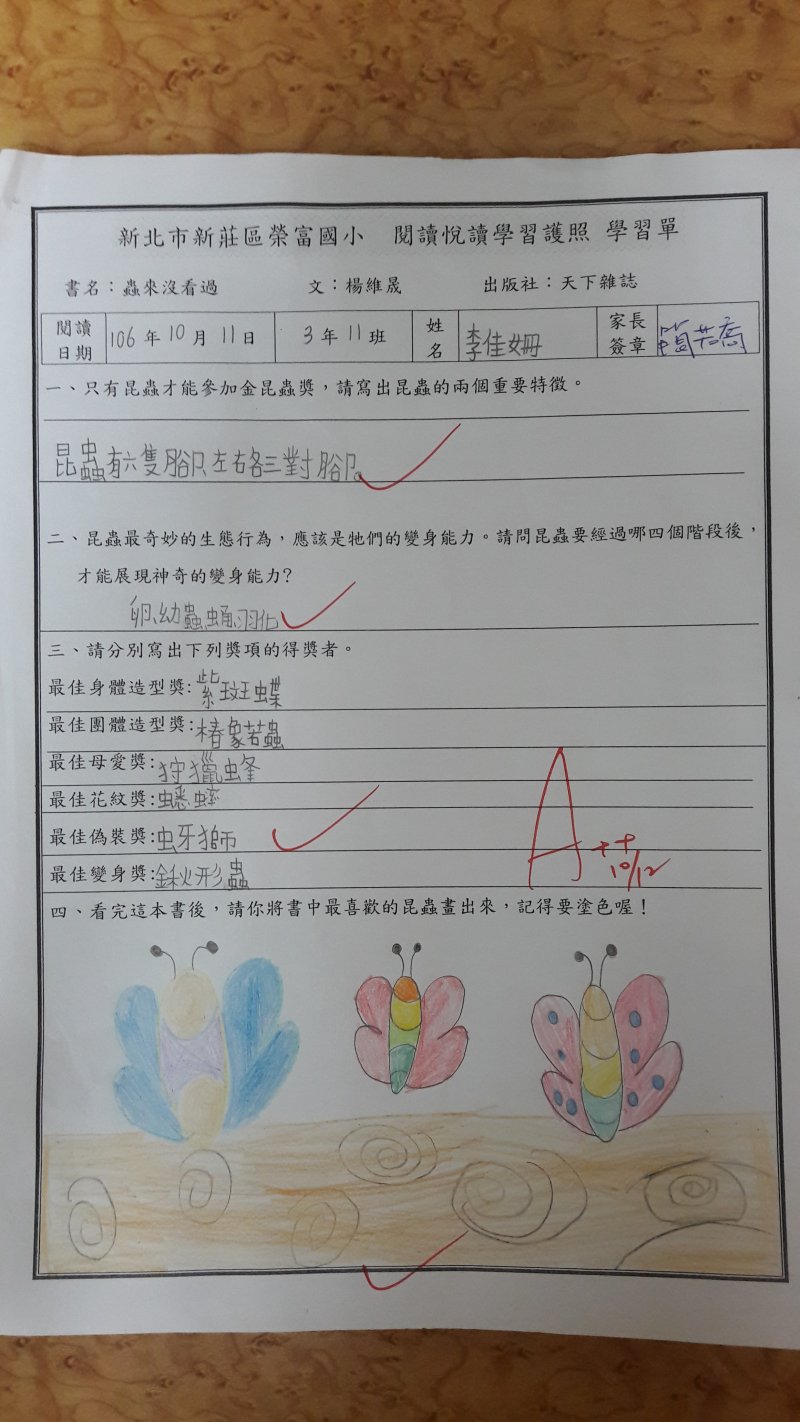 新北市新莊區榮富國小 閱讀悅讀學習護照 學習單
書名：蟲來沒看過 文：楊維晟 出版社：天下雜誌
閱讀日期 106年10月11日 3年11班 姓名 李佳姍 家長簽章 簡若喬
一、只有昆蟲才能參加金昆蟲獎，請寫出昆蟲的兩個重要特徵。
昆蟲有六隻腳，左右各三對腳。
二、昆蟲最奇妙的生態行為，應該是牠們的變身能力。請問昆蟲要經過哪四個階段後，
才能展現神奇的變身能力?
卵、幼蟲、蛹、羽化
三、請分別寫出下列獎項的得獎者。
最佳身體造型獎:紫斑蝶
最佳團體造型獎:椿象若蟲
最佳母愛獎:狩獵蜂
最佳花紋獎:蟋蟀
最佳偽裝獎:蚜獅
最佳變身獎:鍬形蟲
A++
10/12
四、看完這本書後，請你將書中最喜歡的昆蟲畫出來，記得要塗色喔！